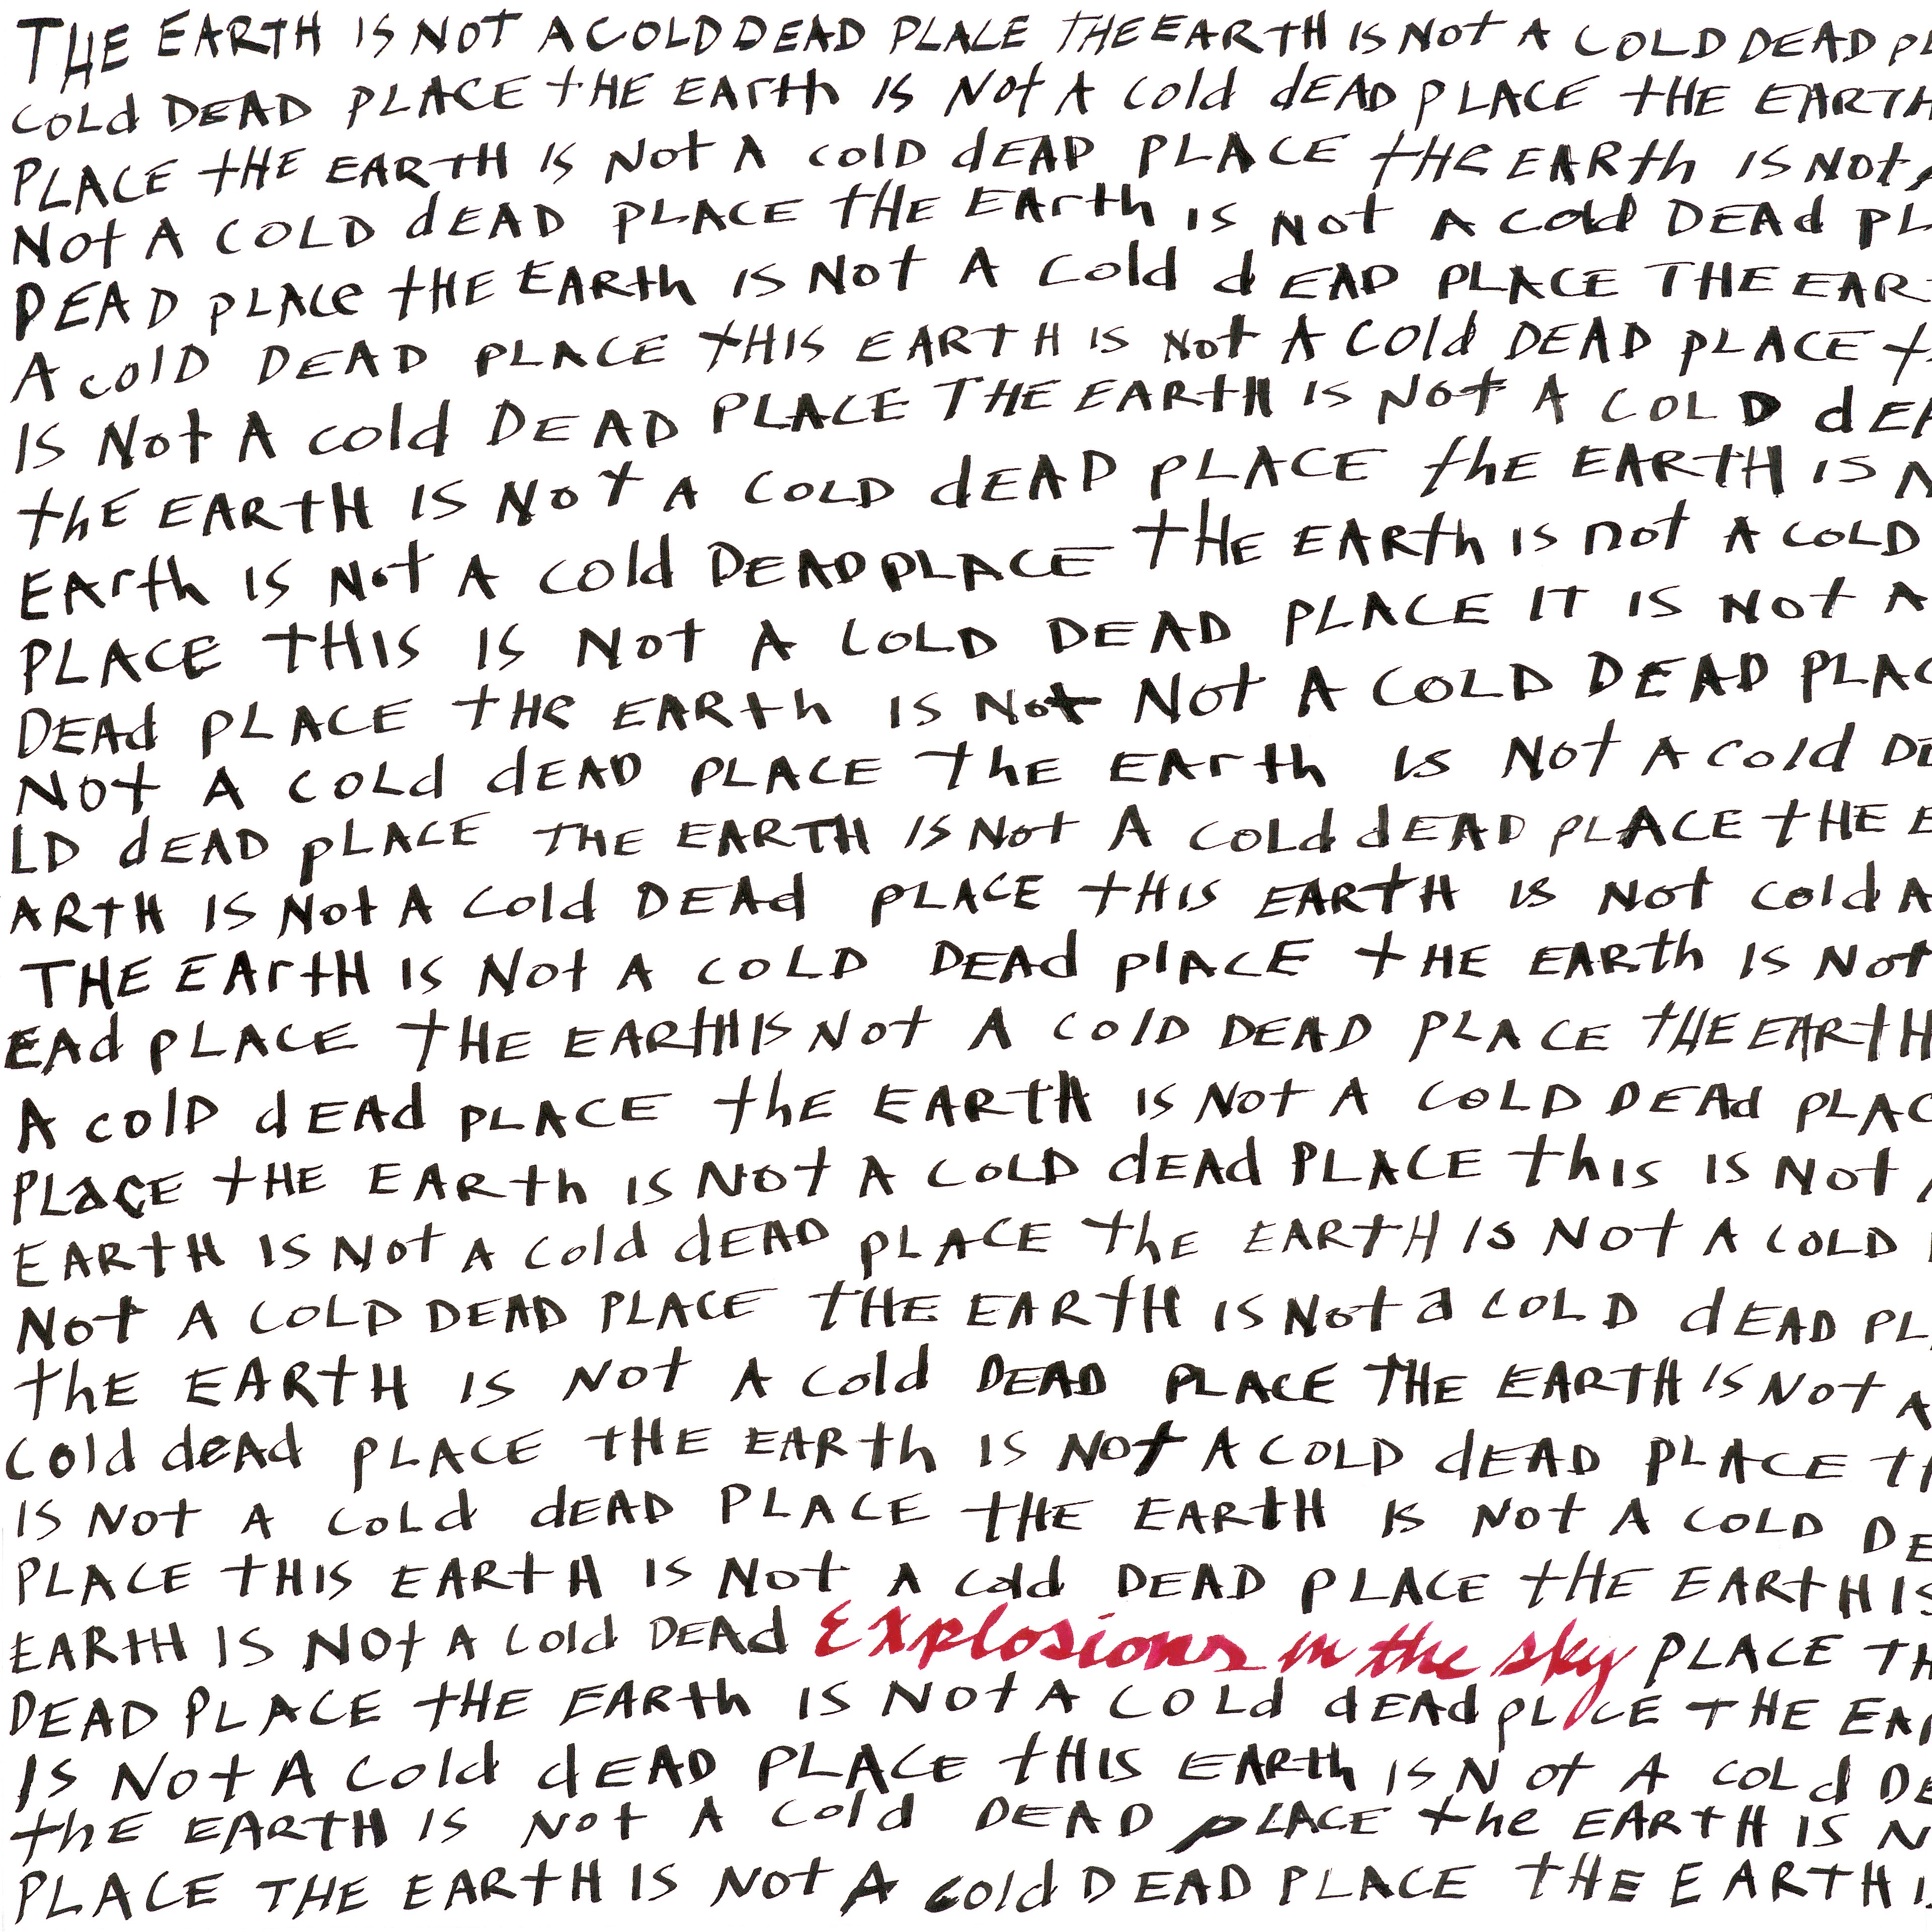 THE EARTH IS NOT A COLD DEAD PLACE THE EARTH IS NOT A COLD DEAD PL
COLd DEAD PLACE tHE EArth IS Not A Cold dEAD PLACE tHE EARTH
PLACE tHE EARTH IS Not A Cold dEAD PLACE tHE EARth IS Not A
Not A COLD dEAD PLACE tHE EArth IS Not A Cold DEAd PL
DEAD PLACe tHE EARth IS Not A Cold dEAD PLACE THE EAR
A colD DEAD PLACE tHIS EARtH IS Not A Cold DEAD PLACE t
IS Not A cold DEAD PLACE THE EARtH IS Not A COLD dEA
thE EARtH IS Not A COLD dEAD PLACE thE EARTH IS N
EArth IS Not A cold DEAD PLACE tHE EARth IS not A COLD
PLACE tHIS IS Not A COLD DEAD PLACE IT IS Not A
DEAd PLACE tHe EARth IS Not Not A COLD DEAD PLAC
Not A COLd dEAD PLACE thE EArth IS Not A Cold DE
LD dEAD pLACE THE EARTH IS Not A COLd dEAD pLACE tHE E
ARtH IS Not A Cold DEAd PLACE tHIS EARtH IS Not Cold A
THE EArtH IS Not A COLD DEAd plACE tHE EARth IS Not
EAd pLACE tHE EARtH IS Not A ColD DEAD PLACE tHE EARtH
A colD dEAd pLACE thE EARtH IS Not A COLD DEAd PLAC
PLaCE tHE EARth IS Not A COLD dEAd PLACE thIS IS Not A
EARtH IS Not A Cold dEAD pLACE thE EARtH IS Not A COLD
Not A COLD DEAD PLACE tHE EARtH IS Not a COLD dEAD PL
thE EARtH IS Not A Cold DEAD PLACE THE EARTH IS Not A
Cold deAd pLACE tHE EARth IS Not A COLD dEAD PLACE tH
IS Not A COLd dEAD PLACE tHE EARtH IS Not A COLD DE
PLACE tHIS EARtH IS Not A Cold DEAD PLACE tHE EARtH IS
EARtH IS NOt A Cold DEAd Explosions in the sky PLACE TH
DEAD PLACE tHE EARth IS Not A COLd dEAd pLCE THE EAR
IS Not A Cold dEAD PLACE tHIS EARth IS Not A COLd DE
thE EARtH IS Not A Cold DEAD pLACE the EARtH IS N
PLACE THE EARtH IS Not A cold DEAD PLACE tHE EARTH IS